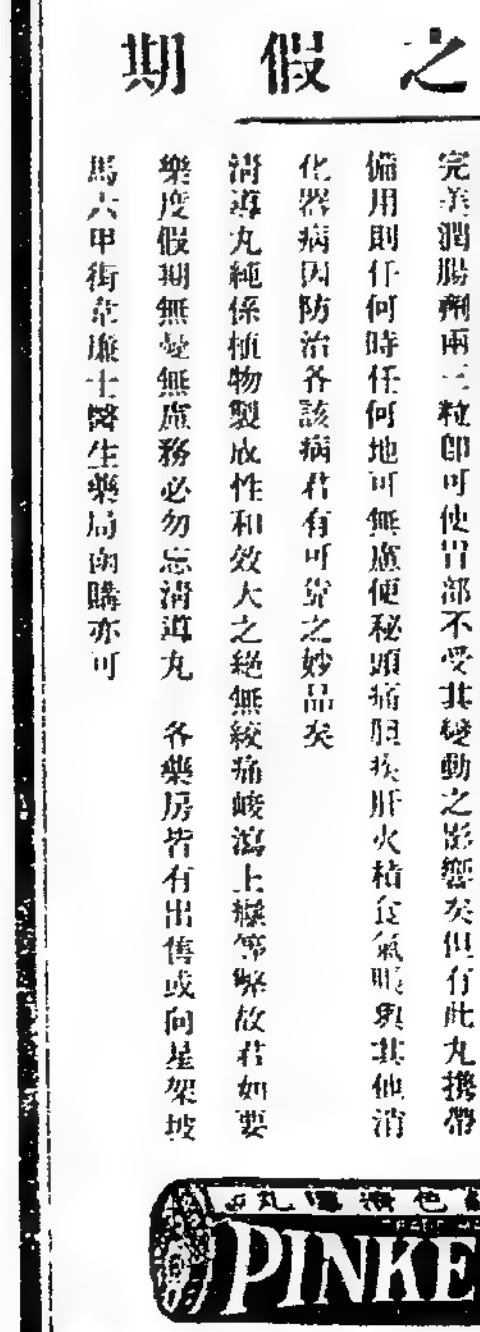 之假期
完美潤腸劑兩三粒即可使胃部不受其變動之影響矣但有此丸攜帶
備用則任何時任何地可無慮便秘頭痛胆疾肝火積食氣脹與其他消
化器病因防治各該病君有可靠之妙品矣
清導丸純係植物製成性和效大之絕無絞痛峻瀉上癮等弊故君如要
樂度假期無憂無慮務必勿忘清導丸 各藥房皆有出售或向星架坡
馬六甲街韋廉士醫生藥局函購亦可
色清導丸
PINKE